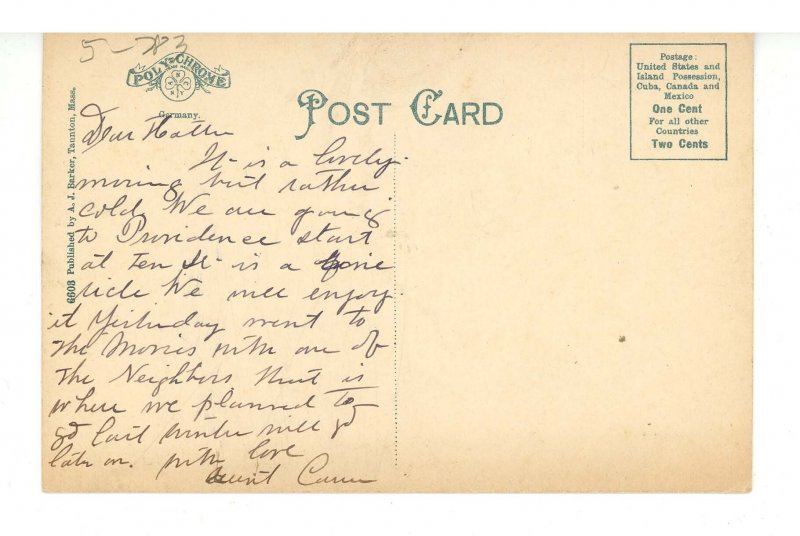 5-783
POLY-CHROME
N
N
N
Y
Germany.
6603 Published by A. J. Barker, Taunton, Mass.
POST CARD
Postage:
United States and
Island Possession,
Cuba, Canada and
Mexico
One Cent
For all other
Countries
Two Cents
Dear
It is a lovely
morning but rather
cold. We are going
to Providence start
at Ten It is a fine
ride We will enjoy
it Yesterday went to
the Movies with one of
the Neighbors that is
where we planned to
go last winter will go
later on. with love
Aunt